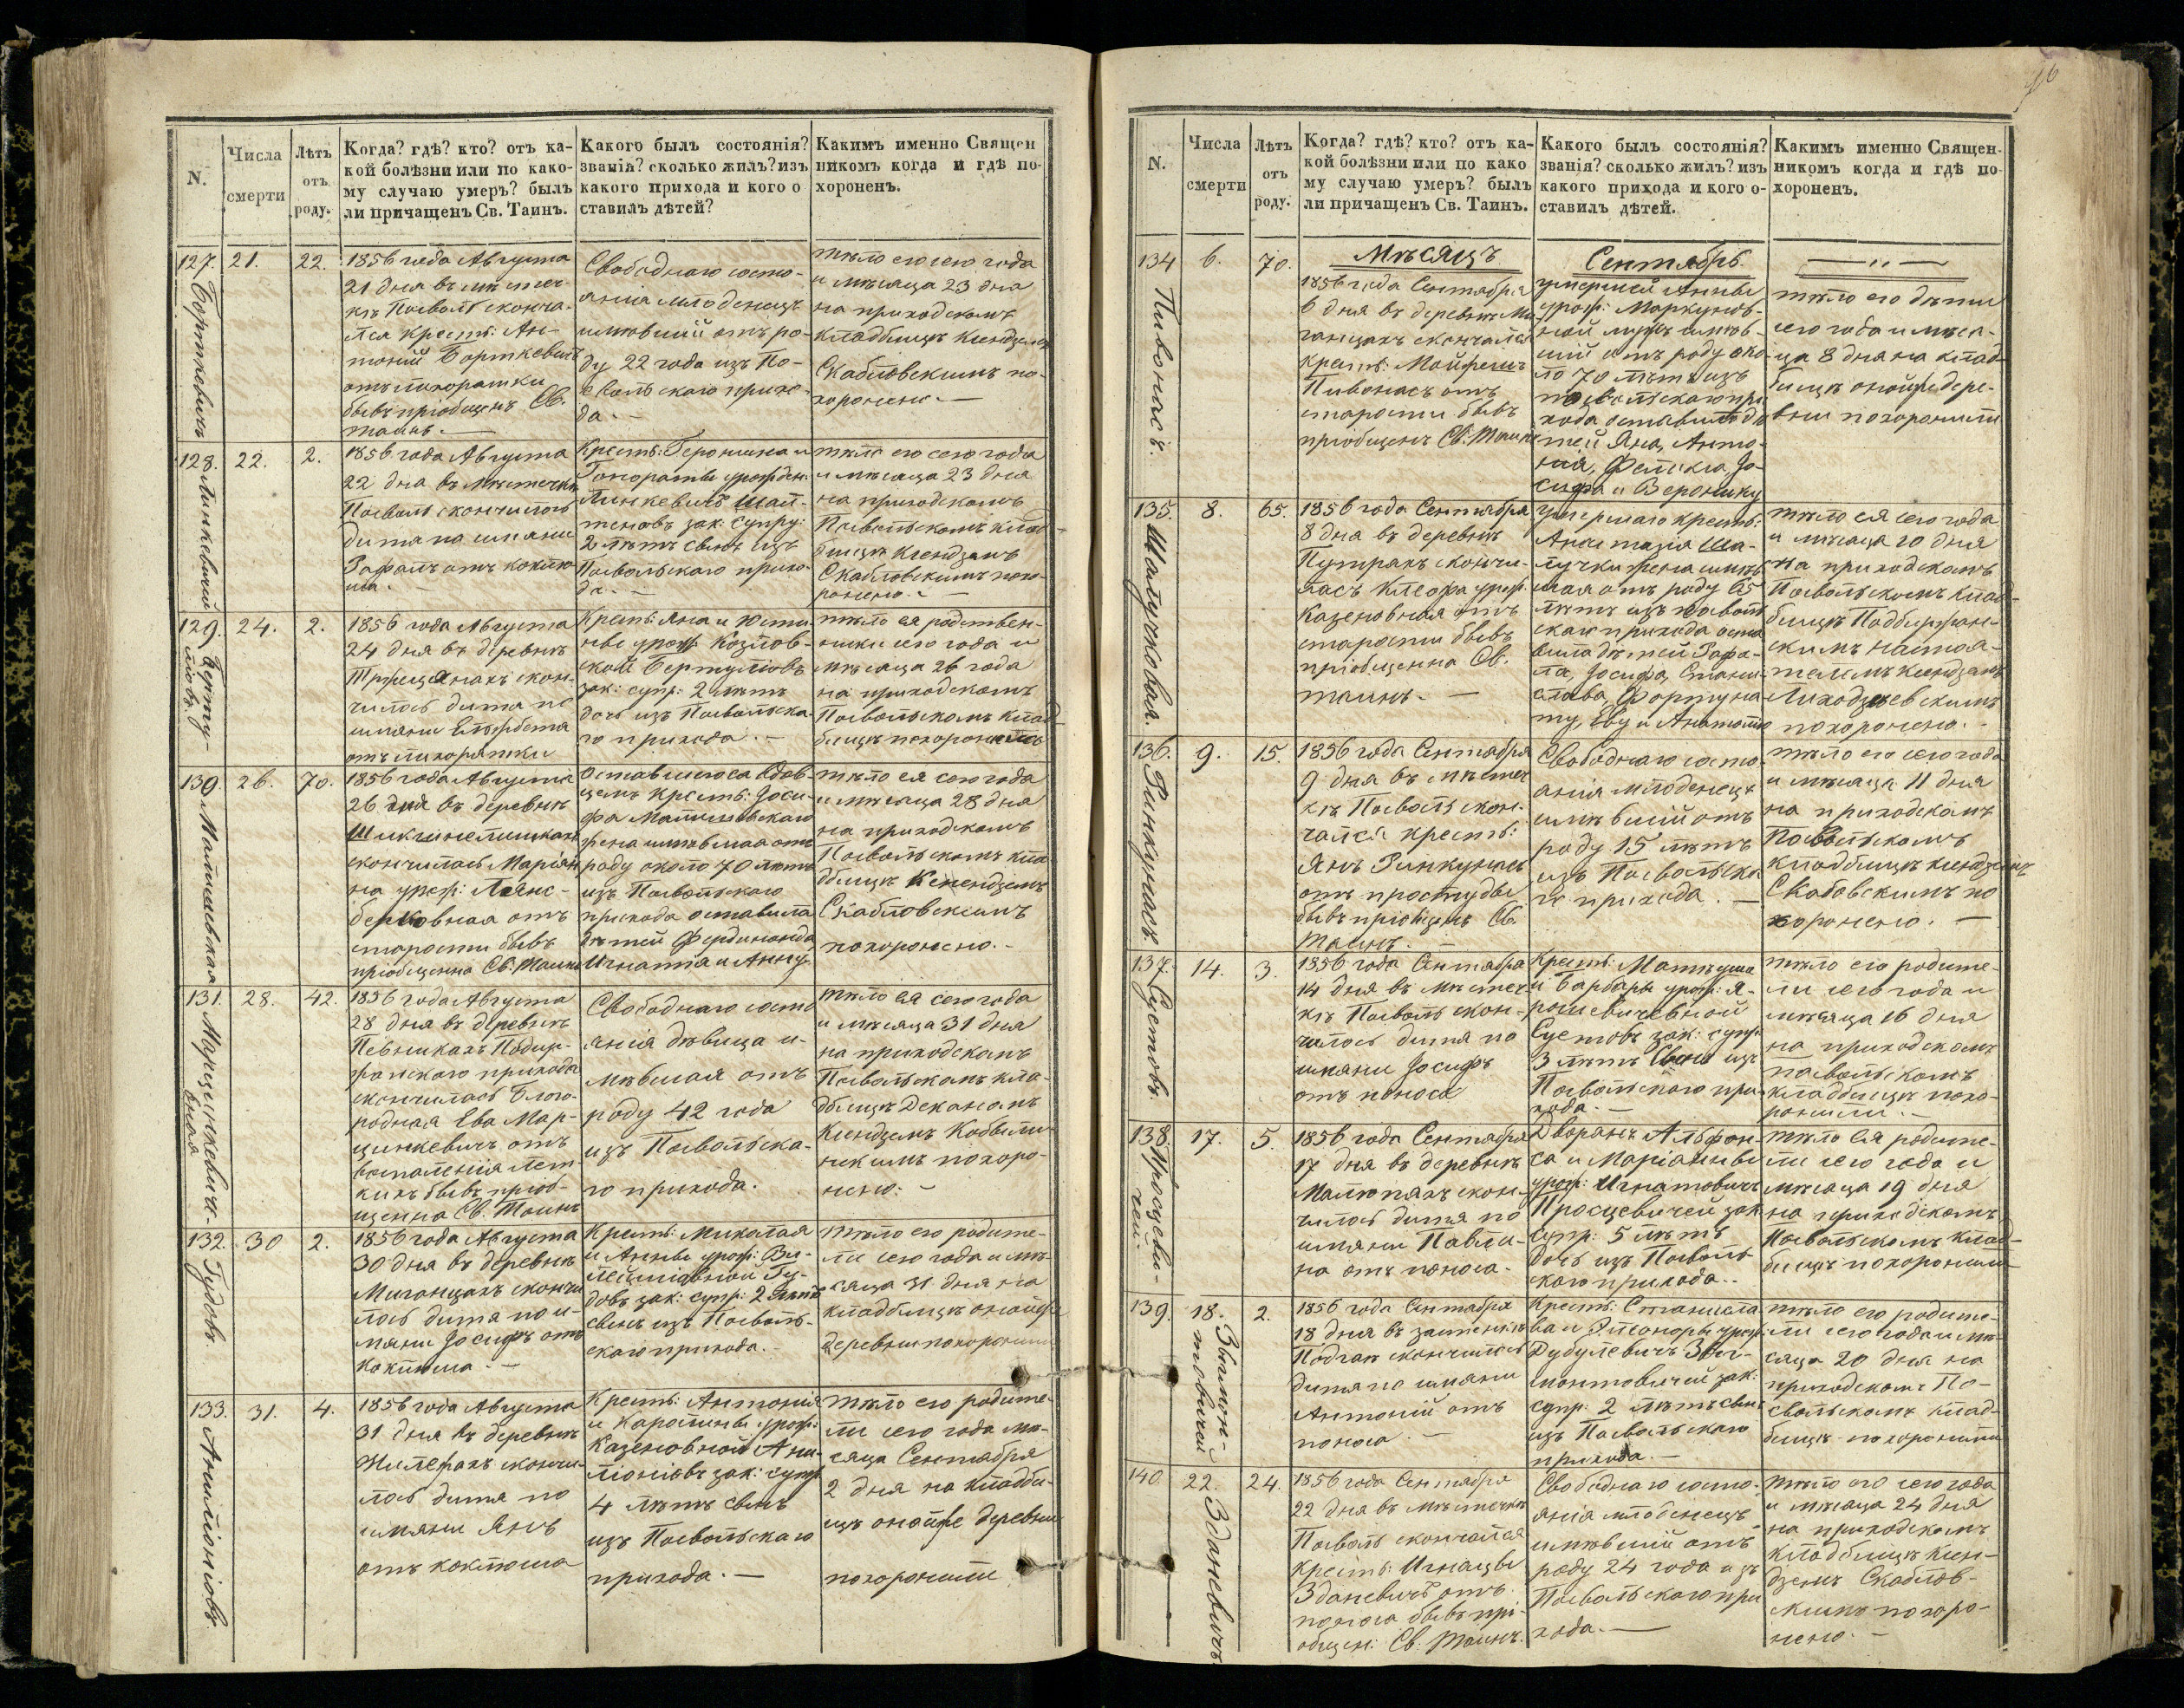 96
N.
Числа смерти
Лѣтъ отъ роду.
Когда? гдѣ? кто? отъ ка-
кой болѣзни или по како-
му случаю умеръ? былъ
ли причащенъ Св. Таинъ.
Какого былъ состоянія?
званія? сколько жилъ? изъ
какого прихода и кого о
ставилъ дѣтей?
Какимъ именно Священ
никомъ когда и гдѣ по-
хороненъ.
127.
Борткевичъ
21.
22.
1856 года Августа
21 дня въ мѣстеч-
кѣ Посволѣ сконча-
лся кресть: Ан-
тоній Борткевичъ
отъ лихорадки
бывъ пріобщенъ Св.
таинъ. —
Свободнаго состо-
янія младенецъ
имѣвшій отъ ро-
ду 22 года изъ По-
свольскаго прихо-
да. —
тѣло его сего года
и мѣсяца 23 дня
на приходскомъ
кладбищѣ Ксендземъ
Скабловскимъ по-
хоронено. —
128.
22.
2.
1856 года Августа
22 дня въ мѣстечкѣ
Посволѣ скончилось
дитя по имяни
отъ коклю-
ша. —
Крестъ: Геронима и
урожден:
зак: супру:
2 лѣтъ сынъ изъ
Посвольскаго прихо-
да. —
тѣло его сего года
и мѣсяца 23 дня
на приходскомъ
Посвольскомъ клад-
бищѣ Ксендзомъ
Скабловскимъ похо-
ронено. —
129.
24.
2.
1856 года Августа
24 дня въ деревнѣ
скон-
чилось дитя по
имяни Елжбета
отъ лихорадки
Крестъ: Яна и Юсти
ны урож: Козлов-
ской Бертулювъ
зак: супр: 2 лѣтъ
дочь изъ Посвольска-
го прихода. —
тѣло ея родствен-
ники сего года и
мѣсяца 26 года
на приходскомъ
Посвольскомъ клад-
бищѣ похоронили
130.
26.
70.
1856 года Августа
26 дня въ деревнѣ
скончилась Маріан
на урож:
отъ
старости бывъ
пріобщенна Св: Таинъ
Оставшегося вдов-
цемъ крестъ: Іоси-
фа
жена имѣвшая отъ
роду около 70 лѣтъ
изъ Посвольскаго
прихода оставила
дѣтей Фердинанда
Игнатія и Анну
тѣло ея сего года
и мѣсяца 28 дня
на приходскомъ
Посвольскомъ кла-
дбищѣ Ксендземъ
Скабловскимъ
похоронено. —
131.
28.
42.
1856 года Августа
28 дня въ деревнѣ
прихода
скончилась Благо-
родная Ева Мар-
цинкевичъ отъ
воспаленія лег-
кихъ бывъ пріоб-
щенна Св. Таинъ
Свободнаго состо
янія дѣвица и-
мѣвшая отъ
роду 42 года
изъ Посвольска-
го прихода.
тѣло ея сего года
и мѣсяца 31 дня
на приходскомъ
Посвольскомъ кла-
дбищѣ Деканомъ
Ксендземъ Кобыли-
нскимъ похоро-
нено. —
132.
Гудовъ.
30
2.
1856 года Августа
30 дня въ деревнѣ
Миганцахъ скончи
лось дитя по и-
мяни Іосифъ отъ
коклюша. —
Крестъ: Миколая
и Анны урож:
Гу-
довъ зак: супр: 2 лѣтъ
сынъ изъ Посволь-
скаго прихода. —
тѣло его родите-
ли сего года и мѣ-
сяца 31 дня на
кладбищѣ онойже
деревни похоронили
133.
31.
4.
1856 года Августа
31 дня въ деревнѣ
скончи-
лось дитя по
имяни Янъ
отъ коклюша
Крестъ: Антонія
и Каролины урож:
Казеновной
зак: супр:
4 лѣтъ сынъ
изъ Посвольскаго
прихода. —
тѣло его родите-
ли сего года мѣ-
сяца Сентября
2 дня на кладби-
щѣ онойже деревни
похоронили
N.
Числа смерти
Лѣтъ отъ роду.
Когда? гдѣ? кто? отъ ка-
кой болѣзни или по како
му случаю умеръ? былъ
ли причащенъ Св. Таинъ.
Какого былъ состоянія?
званія? сколько жилъ? изъ
какого прихода и кого о-
ставилъ дѣтей.
Какимъ именно Священ-
никомъ когда и гдѣ по-
хороненъ.
Мѣсяцъ
Сентябрь
— „ —
134
Пивонасъ.
6.
70.
1856 года Сентября
6 дня въ деревнѣ Ми-
ганцахъ скончался
крестъ:
Пивонасъ отъ
старости бывъ
пріобщенъ Св: Таинъ
умершей Анны
урож:
ной мужъ имѣв-
шій отъ роду око-
ло 70 лѣтъ изъ
Посвольскаго при
хода оставилъ дѣ
тей Яна, Анто-
нія, Феликса, Іо-
сифа и Веронику
тѣло его дѣти
сего года и мѣся-
ца 8 дня на клад-
бищѣ онойже дере-
вни похоронили
135.
8.
65.
1856 года Сентября
8 дня въ деревнѣ
скончи-
лась Клеофа урож:
Казеновная отъ
старости бывъ
пріобщенна Св.
таинъ. —
умершаго крестъ:
Анастазія Ша-
лучки жена имѣв
шая отъ роду 65
лѣтъ изъ Посволь
скаго прихода оста
вила дѣтей Рафа-
ла, Іосифа, Стани-
слава, Фортуна
ту, Еву и
тѣло ея сего года
и мѣсяца 10 дня
на приходскомъ
Посвольскомъ клад-
бищѣ
скимъ настоя-
телемъ Ксендземъ
похоронено. —
136.
Зинкунасъ.
9.
15.
1856 года Сентября
9 дня въ мѣстеч
кѣ Посволѣ скон-
чался крестъ:
Янъ Зинкунасъ
отъ простуды
бывъ пріобщенъ Св.
таинъ.
Свободнаго состо
янія младенецъ
имѣвшій отъ
роду 15 лѣтъ
изъ Посвольска
го прихода. —
тѣло его сего года
и мѣсяца 11 дня
на приходскомъ
Посвольскомъ
кладбищѣ ксендземъ
Скабовскимъ по
хоронено. —
137.
Суетовъ
14.
3.
1856 года Сентября
14 дня въ мѣстеч
кѣ Посволѣ скон-
чилось дитя по
имяни Іосифъ
отъ поноса
Крестъ: Матеуша
и Барбары урож: Я-
рошевичевной
Суетовъ зак: супр:
3 лѣтъ сынъ изъ
Посвольскаго при-
хода. —
тѣло его родите-
ли сего года и
мѣсяца 16 дня
на приходскомъ
Посвольскомъ
кладбищѣ похо-
ронили. —
138.
Просцеви-
чей.
17.
5.
1856 года Сентября
17 дня въ деревнѣ
скон-
чилось дитя по
имяни Павли-
на отъ поноса.
Дворянъ Альфон-
са и Маріанны
урож: Игнатовичъ
Просцевичей зак:
супр: 5 лѣтъ
дочь изъ Посволь
скаго прихода. —
тѣло ея родите-
ли сего года и
мѣсяца 19 дня
на приходскомъ
Посвольскомъ клад-
бищѣ похоронили
139.
18.
2.
1856 года Сентября
18 дня въ застѣнкѣ
скончилось
дитя по имяни
Антоній отъ
поноса. —
Крестъ: Станисла
ва и Элеоноры урож:
зак:
супр: 2 лѣтъ сынъ
изъ Посвольскаго
прихода. —
тѣло его родите-
ли сего года и мѣ-
сяца 20 дня на
приходскомъ По-
свольскомъ клад-
бищѣ похоронили
140.
Зданевичъ.
22.
24.
1856 года Сентября
22 дня въ мѣстечкѣ
Посволѣ скончался
крестъ: Игнацы
Зданевичъ отъ
поноса бывъ прі-
общен: Св. Таинъ.
Свободнаго состо-
янія младенецъ
имѣвшій отъ
роду 24 года изъ
Посвольскаго при
хода. —
тѣло его сего года
и мѣсяца 24 дня
на приходскомъ
кладбищѣ Ксен-
дземъ Скаблов-
скимъ похоро-
нено. —